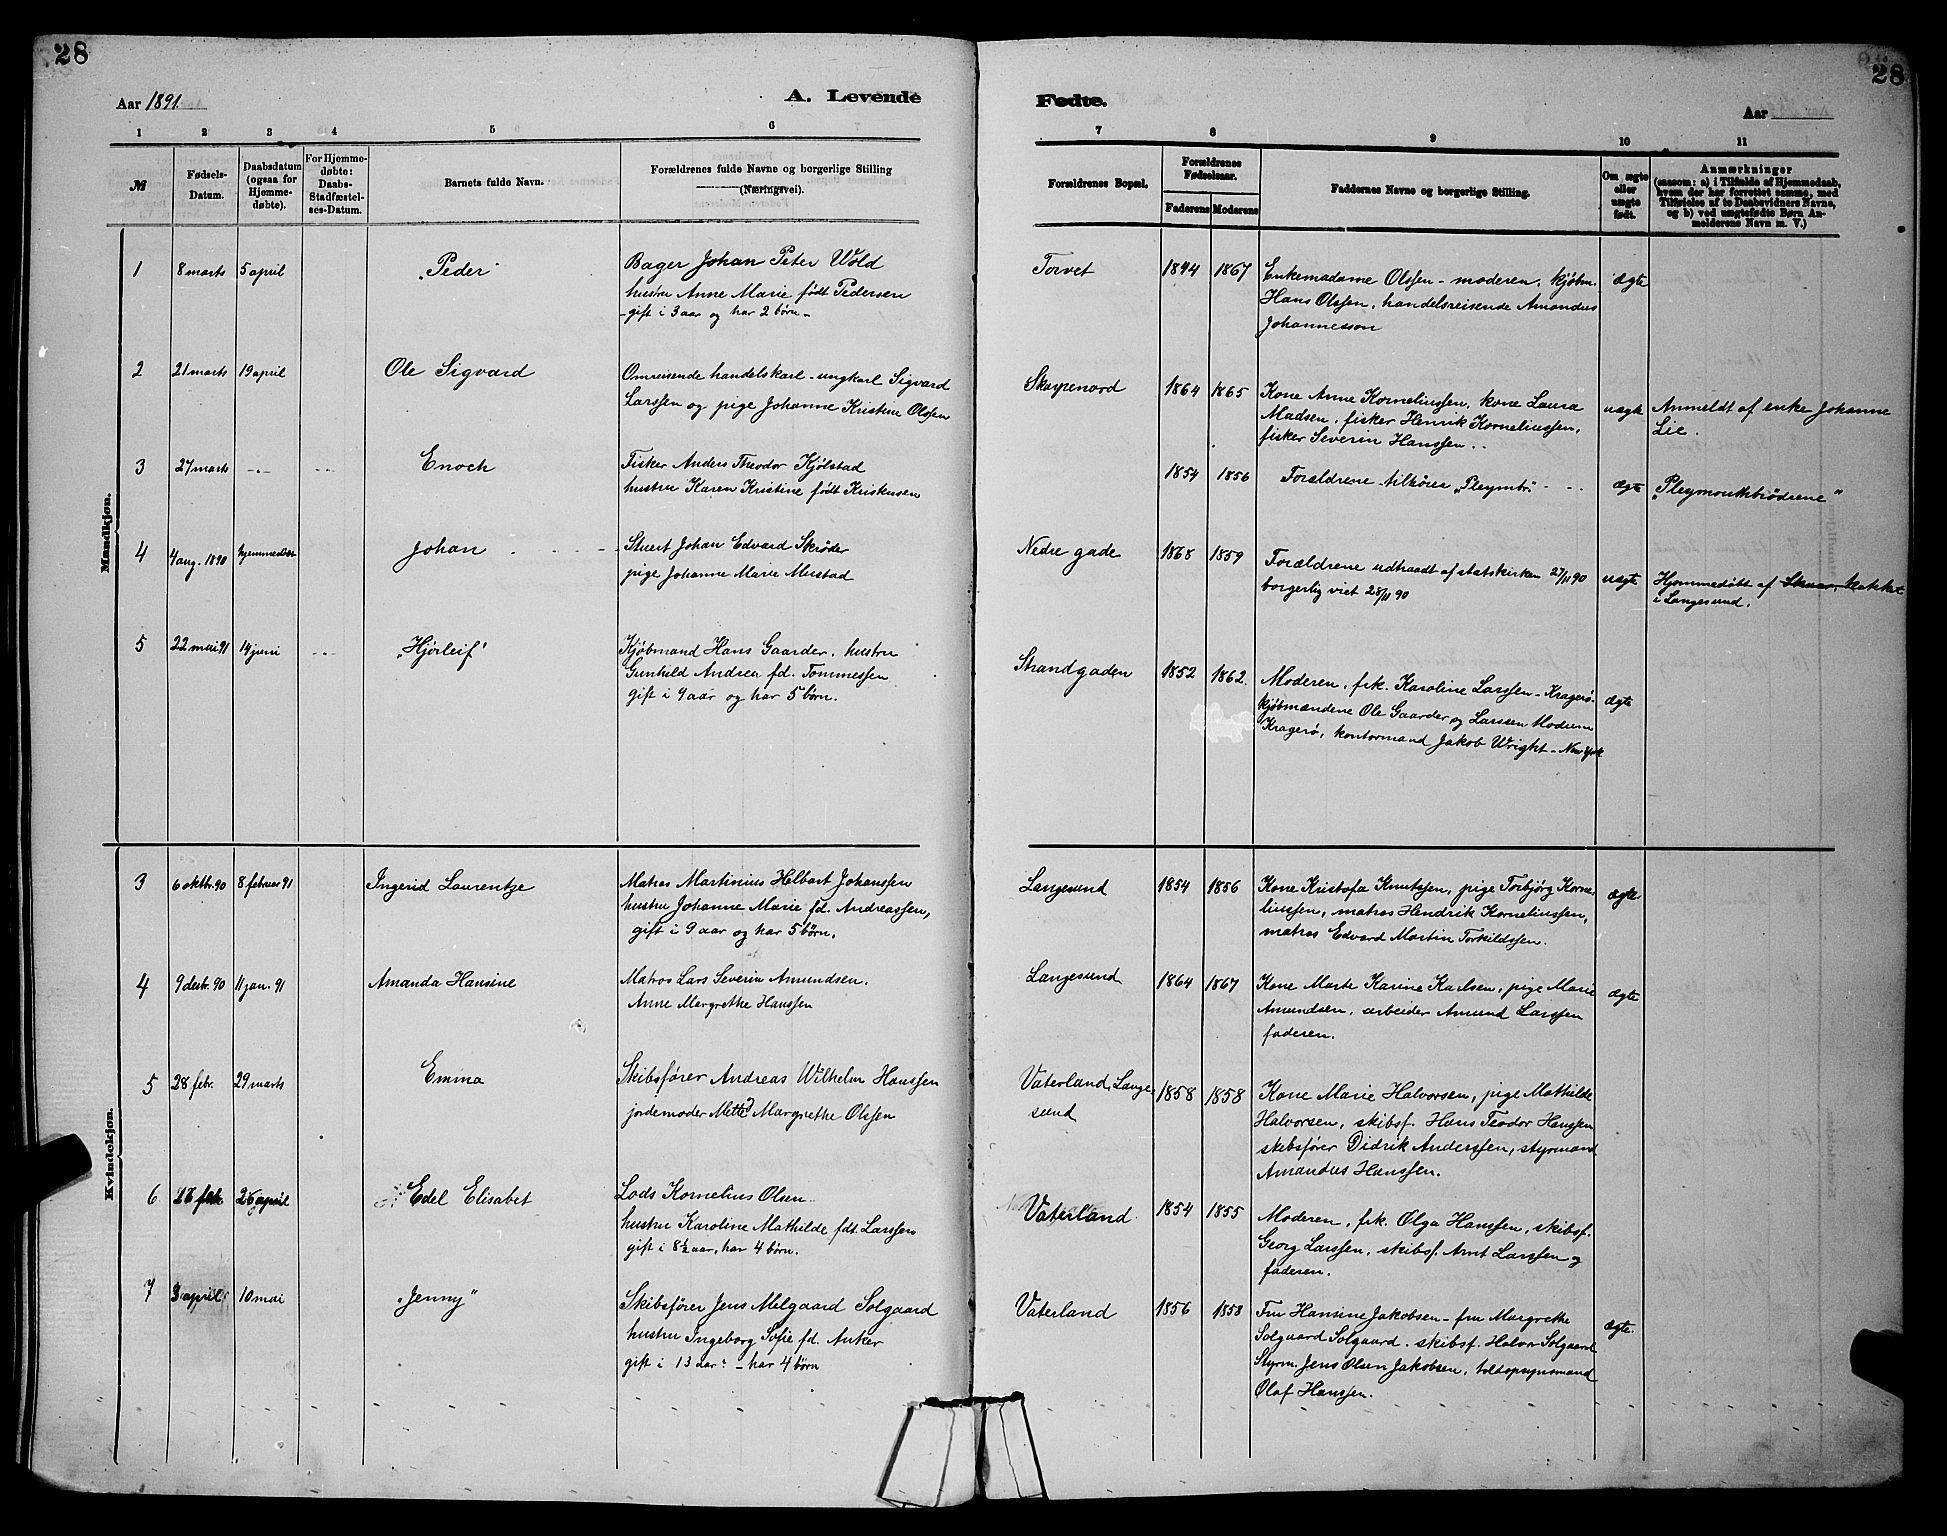 28
28
Aar 1891.
A. Levende
Fødte.
Aar
1 2 3 4 5 6
7 8 9 10 11
№
Fødsels-
Datum.
Daabsdatum
(ogsaa for
Hjemme-
døbte).
For Hjemme-
døbte:
Daabs-
Stadfæstel-
ses-Datum.
Barnets fulde Navn.
Forældrenes fulde Navne og borgerlige Stilling
(Næringsvei).
Forældrenes Bopæl.
Forældrenes
Fødselsaar.
Faderens Moderens
Faddernes Navne og borgerlige Stilling.
Om ægte
eller
uægte
født.
Anmærkninger
(saasom: a) i Tilfælde af Hjemmedaab,
hvem der har forrettet samme, med
Tilføielse af to Daabsvidners Navne,
og b) ved uægtefødte Børn An-
melderens Navn m. V.)
Mandkjøn.
1 8 marts 5 april „Peder"
Bager Johan Peter Wold
hustru Anne Marie født Pedersen
- gift i 3 aar og har 2 børn -
Torvet 1844 1867
Enkemadame Olssen - moderen, kjøbm.
Hans Olssen, handelsreisende Amandus
Johannesson
ægte
2 21 marts 19 april Ole Sigvard
Omreisende handelskarl - ungkarl Sigvard
Larssen og pige Johanne Kristine Olssen
Skarpenord 1864 1865
Kone Anne Korneliussen, kone Laura
Madsen, fisker Henrik Korneliussen,
fisker Severin Hanssen.
uægte
Anmeldt af enke Johanne
Lie.
3 27 marts -"- -"- Enoch
Fisker Anders Theodor Kjølstad
hustru Karen Kristine født Kristensen
1854 1856
Forældrene tilhører „Pleymbr."
ægte
„Pleymouthbrødrene"
4 4 aug. 1890 hjemmedøbt Johan
Stuert Johan Edvard Skrøder
pige Johanne Marie Mustad
Nedre gade 1868 1859
Forældrene udtraadt af statskirken 27/11 90
borgerlig viet 28/11 90
uægte
Hjemmedøbt af
i Langesund.
5 22 mai 91 14 juni -"- „Hjørleif"
Kjøbmand Hans Gaarder, hustru
Gunhild Andrea fd. Tommessen
gift i 9 aar og har 5 børn.
Strandgaden 1852 1862.
Moderen, frk. Karoline Larssen - Kragerø -
kjøbmændene Ole Gaarder og Larssen
Kragerø, kontormand Jakob Wright - New York
ægte
Kvindekjøn.
3 6 oktbr. 90 8 februar 91 Ingerid Laurentze
Matros Martinius Helbart Johanssen
hustru Johanne Marie fd. Andreassen,
gift i 9 aar og har 5 børn.
Langesund 1854 1856
Kone Kristofa Knutssen, pige Torbjørg Korne-
liussen, matros Hendrik Korneliussen,
matros Edvard Martin Torkildssen.
ægte
4 9 desbr. 90 11 jan. 91 Amanda Hansine
Matros Lars Severin Amundsen.
Anne Margrethe Hanssen
Langesund 1864 1867
Kone Marte Karine Karlsen, pige Marie
Amundsen, arbeider Amund Larssen
faderen.
ægte
5 28 febr. 29 marts Emma
Skibsfører Andreas Wilhelm Hanssen
jordemoder Mette Margrethe Olssen
Vaterland, Lange-
sund
1858 1858
Kone Marie Halvorsen, pige Mathilde
Halvorsen, skibsf. Hans Teodor Hanssen
skibsfører Didrik Anderssen, styrmand
Amandus Hanssen.
6 26 april Edel Elisabet
Lods Kornelius Olsen
hustru Karoline Mathilde fdt. Larssen
gift i 8½ aar, har 4 børn.
Vaterland 1854 1855
Moderen, frk. Olga Hanssen, skibsf.
Georg Larssen, skibsf. Arnt Larssen og
faderen.
7 3 april 10 mai „Jenny"
Skibsfører Jens Melgaard Solgaard
hustru Ingeborg Sofie fd. Anker
gift i 13 aar - har 4 børn
Vaterland 1856 1858
Fru Hansine Jakobsen - fru Margrethe
Solgaard Solgaard. skibsf. Halvor Solgaard
Styrm. Jens Olsen Jakobsen, toldopsynsmand
Olaf Hanssen.
ægte.